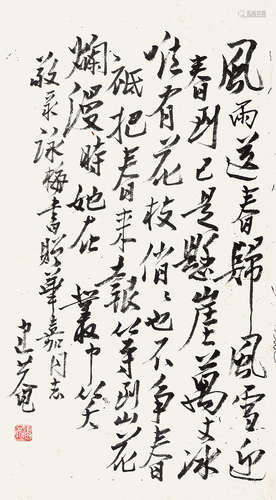 風雨送春歸風雪迎
春到已是懸崖萬丈冰
唯有花枝俏〻也不争春
祇把春来報等到山花
爛漫時她在叢中笑
敬录詠梅書贈華嘉同志